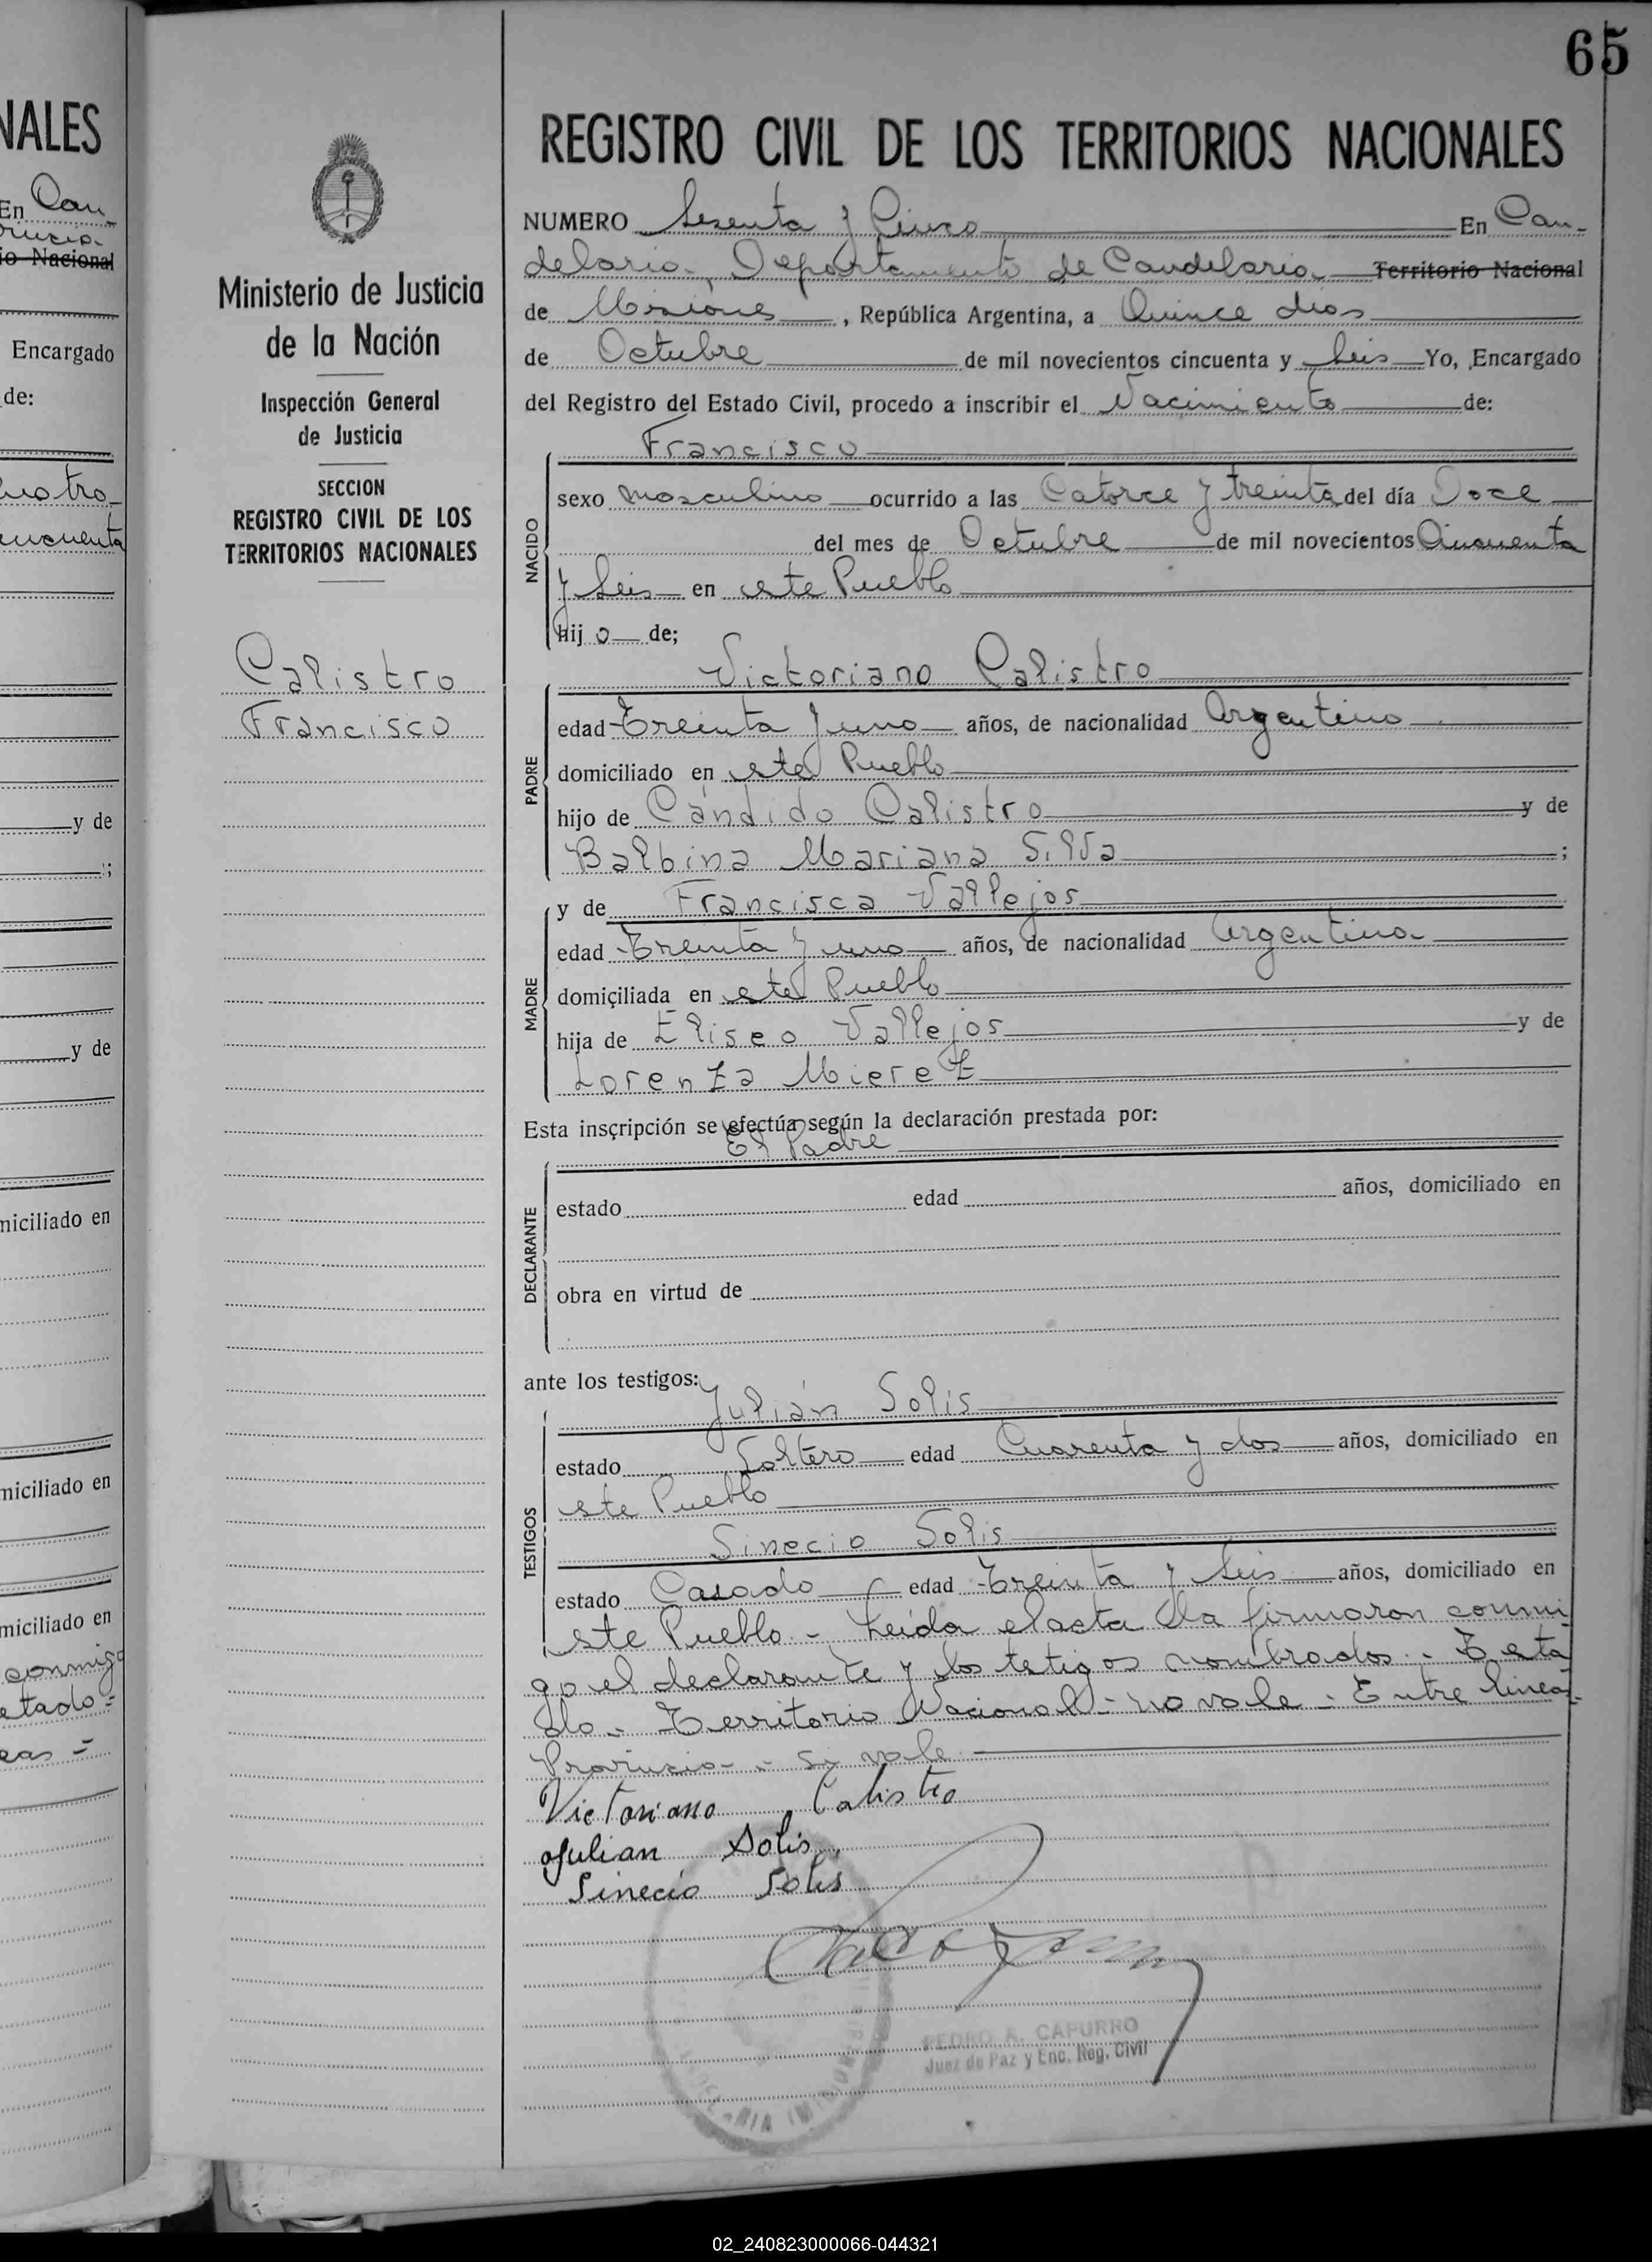 65
NALES
En Can-
io Nacional
Encargado
de:
cuatro
cincuenta
y de
;
y de
miciliado en
miciliado en
miciliado en
conmigo
etado =
eas =
Ministerio de Justicia
de la Nación
Inspección General
de Justicia
SECCION
REGISTRO CIVIL DE LOS
TERRITORIOS NACIONALES
Calistro
Francisco
REGISTRO CIVIL DE LOS TERRITORIOS NACIONALES
NUMERO Sesenta y Cinco En Can-
delaria, Departamento de Candelaria Territorio Nacional
de Misiones, República Argentina, a Quince dias
de Octubre de mil novecientos cincuenta y Seis Yo, Encargado
del Registro del Estado Civil, procedo a inscribir el Nacimiento de:
Francisco
NACIDO
sexo masculino ocurrido a las Catorce y treinta del día Doce
del mes de Octubre de mil novecientos Cincuenta
y Seis en este Pueblo
hijo de;
Victoriano Calistro
PADRE
edad Treinta y uno años, de nacionalidad Argentino
domiciliado en este Pueblo
hijo de Cándido Calistro y de
Balbina Mariana Silva ;
y de Francisca Vallejos
MADRE
edad Treinta y uno años, de nacionalidad Argentina
domiciliada en este Pueblo
hija de Eliseo Vallejos y de
Lorenza Mierez
Esta inscripción se efectúa según la declaración prestada por:
El Padre
DECLARANTE
estado edad años, domiciliado en
obra en virtud de
ante los testigos:
Julián Solis
TESTIGOS
estado Soltero edad Cuarenta y dos años, domiciliado en
este Pueblo
Sinecio Solis
estado Casado edad Treinta y Seis años, domiciliado en
este Pueblo - Leida el acta la firmaron conmi
go el declarante y los testigos nombrados. - Testa
do - Territorio Nacional - no vale - Entre lineas -
Provincia - Si vale
Victoriano Calistro
Julian Solis
Sinecio Solis
PEDRO A. CAPURRO
Juez de Paz y Enc. Reg. Civil
02_240823000066-044321